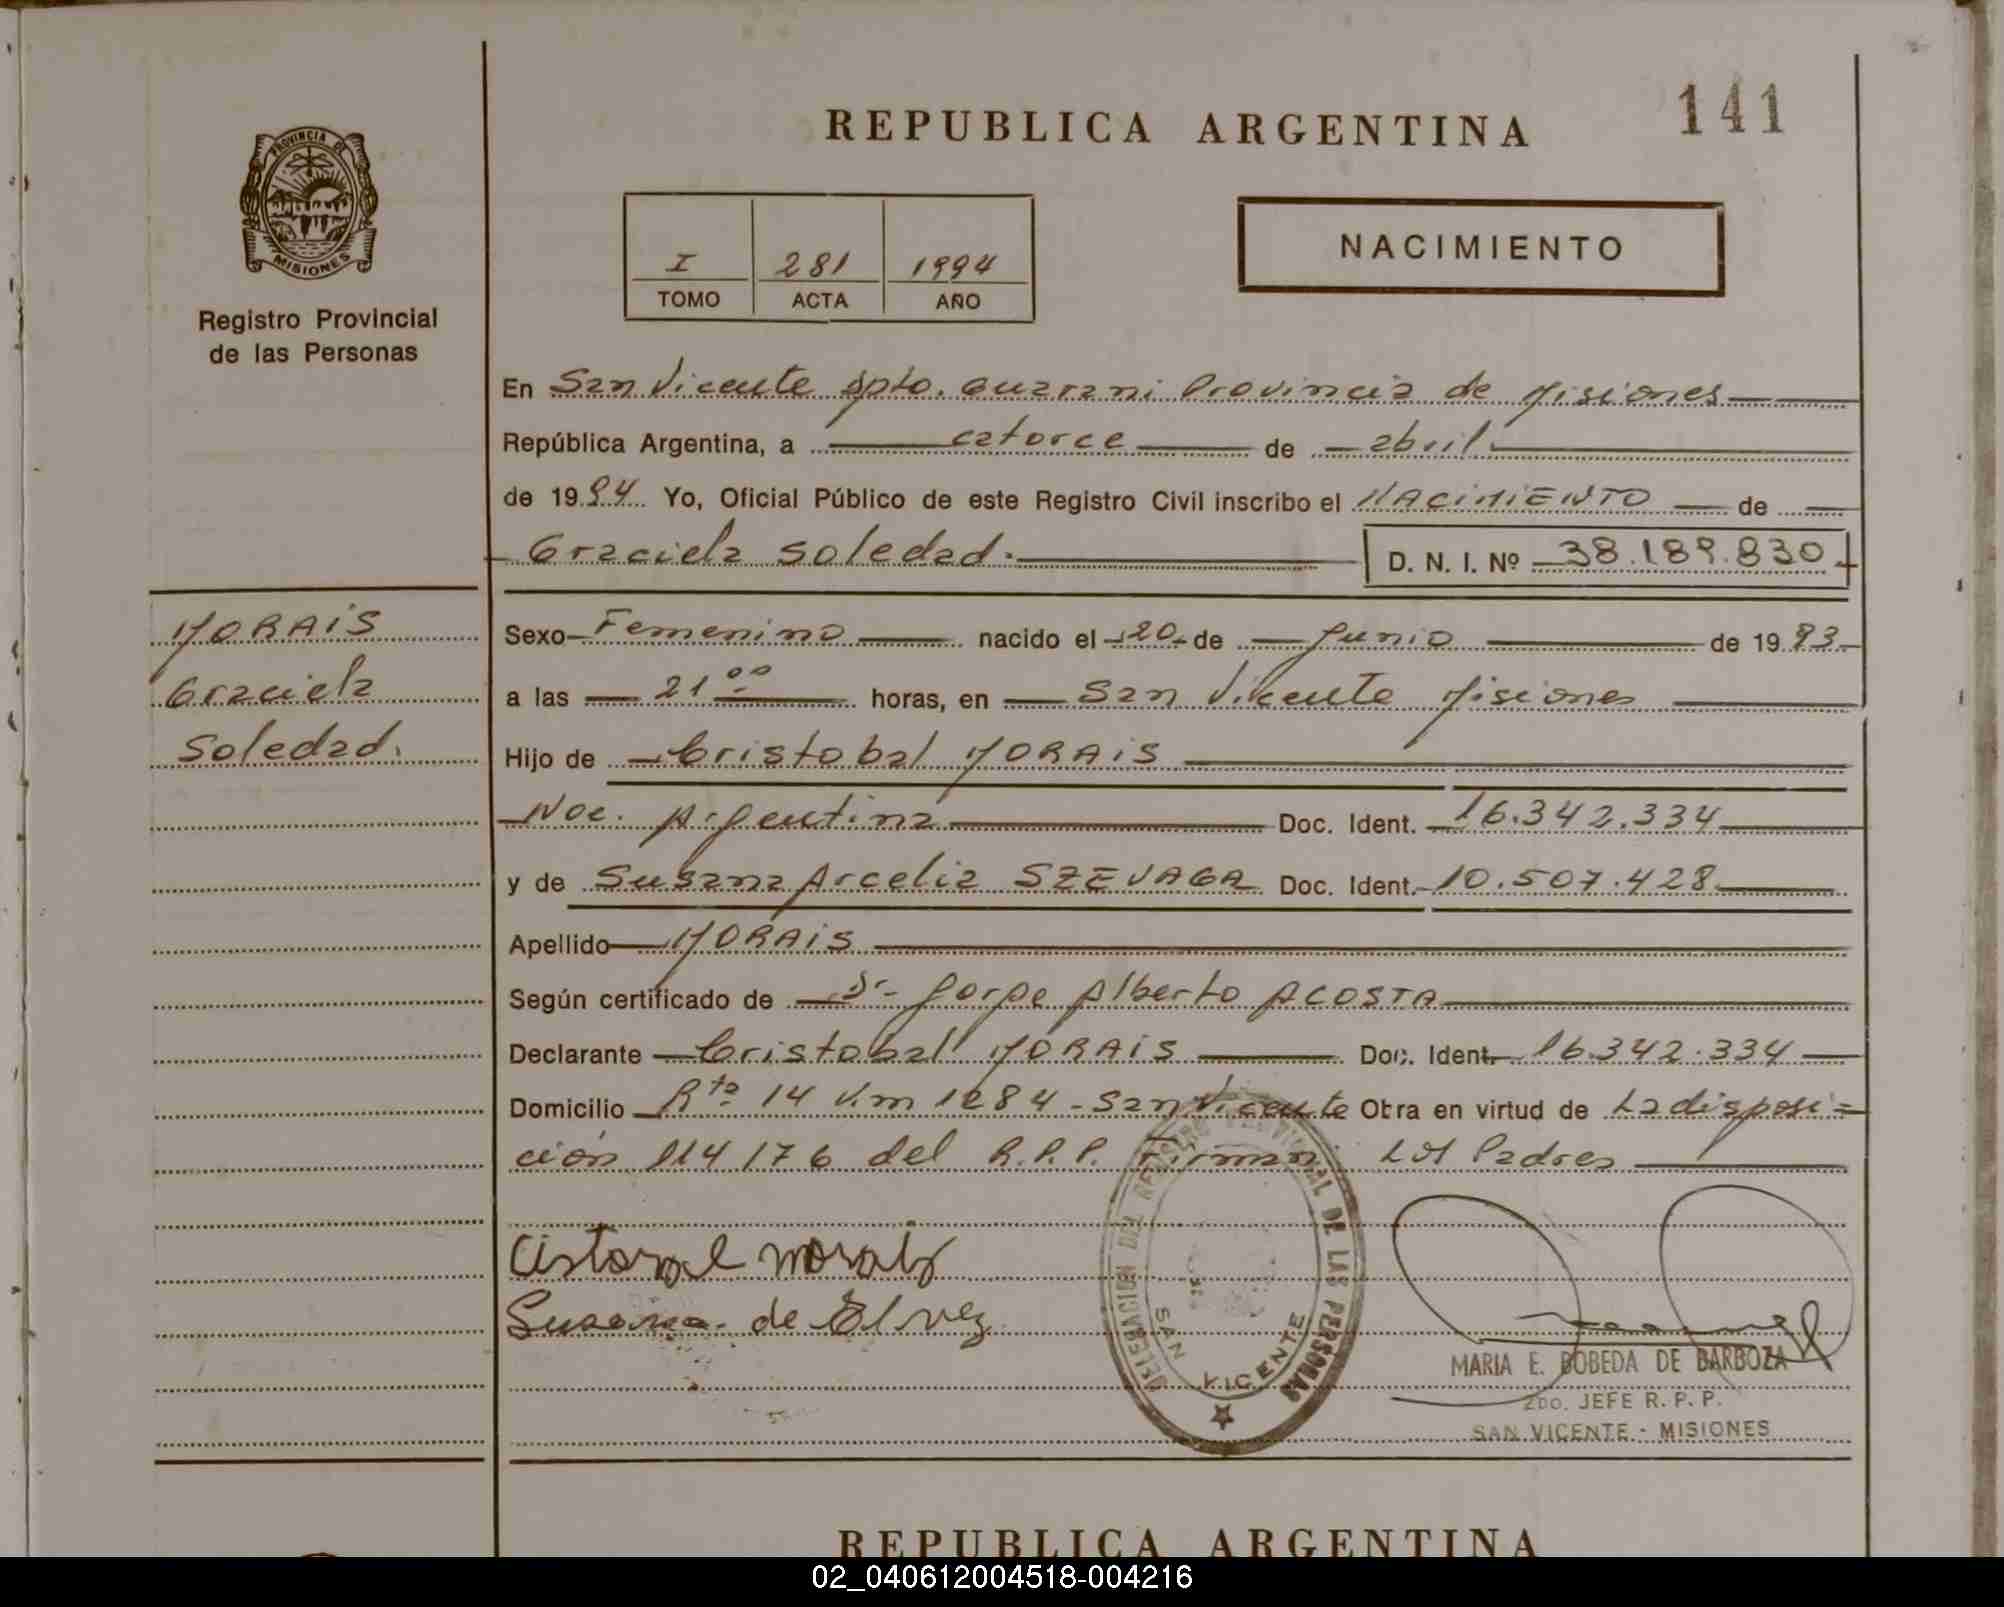 141
REPUBLICA ARGENTINA
PROVINCIA DE
MISIONES
Registro Provincial
de las Personas
I 281 1994
TOMO ACTA AÑO
NACIMIENTO
En San Vicente Dpto. Guarani Provincia de Misiones
República Argentina, a catorce de abril
de 1994 Yo, Oficial Público de este Registro Civil inscribo el NACIMIENTO de
Graciela Soledad. D. N. I. Nº 38.189.830
MORAIS
Graciela
Soledad.
Sexo Femenino nacido el 20 de Junio de 1993
a las 21 00 horas, en San Vicente Misiones
Hijo de Cristobal MORAIS
Nac. Argentina Doc. Ident. 16.342.334
y de Susana Arcelia SZEVAGA Doc. Ident. 10.507.428
Apellido MORAIS
Según certificado de Dr. Jorge Alberto ACOSTA
Declarante Cristobal MORAIS Doc. Ident. 16.342.334
Domicilio Rta 14 Km 1284 - San Vicente Obra en virtud de La disposi=
ción 114/76 del R.P.P. Firman Los Padres
Cistoral morais
Susana de
DELEGACION DEL REGISTRO PROVINCIAL DE LAS PERSONAS
SAN VICENTE
MARIA E. BOBEDA DE BARBOZA
2DO. JEFE R. P. P.
SAN VICENTE - MISIONES
REPUBLICA ARGENTINA
02_040612004518-004216